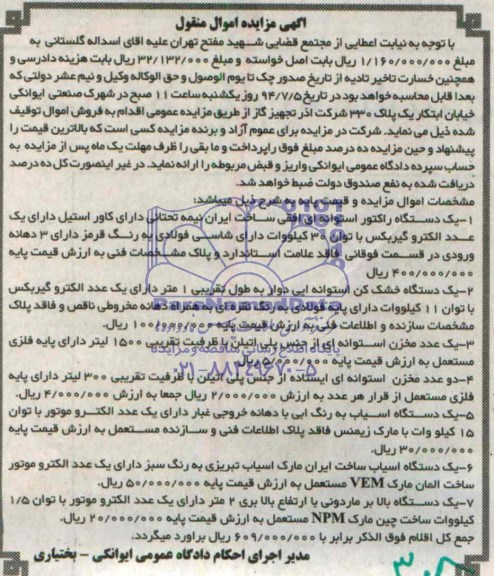 آگهی مزایده اموال منقول
با توجه به نیابت اعطایی از مجتمع قضایی شهید مفتح تهران علیه آقای اسداله گلستانی به
مبلغ ۱/۱۶۰/۰۰۰/۰۰۰ ریال بابت اصل خواسته و مبلغ ۳۲/۱۳۲/۰۰۰ ریال بابت هزینه دادرسی و
همچنین خسارت تاخیر تادیه از تاریخ صدور چک تا یوم الوصول و حق الوکاله وکیل و نیم عشر دولتی که
بعدا قابل محاسبه خواهد بود در تاریخ ۹۴/۷/۵ روز یکشنبه ساعت ۱۱ صبح در شهرک صنعتی ایوانکی
خیابان ابتکار یک پلاک ۳۳۰ شرکت آذر تجهیز گاز از طریق مزایده عمومی اقدام به فروش اموال توقیف
شده ذیل می نماید. شرکت در مزایده برای عموم آزاد و برنده مزایده کسی است که بالاترین قیمت را
پیشنهاد و حین مزایده ده درصد مبلغ فوق را پرداخت و ما بقی را ظرف مهلت یک ماه پس از مزایده به
حساب سپرده دادگاه عمومی ایوانکی واریز و قبض مربوطه را ارائه نماید. در غیر اینصورت کل ده درصد
دریافت شده به نفع صندوق دولت ضبط خواهد شد.
مشخصات اموال مزایده و قیمت پایه به شرح ذیل میباشد:
۱-یک دستگاه راکتور استوانه ای افقی ساخت ایران نیمه تحتانی دارای کاور استیل دارای یک
عدد الکترو گیربکس با توان ۳۰ کیلووات دارای شاسی فولادی به رنگ قرمز دارای ۳ دهانه
ورودی در قسمت فوقانی فاقد علامت استاندارد و پلاک مشخصات فنی به ارزش قیمت پایه
۴۰۰/۰۰۰/۰۰۰ ریال
۲-یک دستگاه خشک کن استوانه ایی دوار به طول تقریبی ۱ متر دارای یک عدد الکترو گیربکس
با توان ۱۱ کیلووات دارای پایه فولادی به رنگ نقره ای به همراه دهانه مخروطی ناقص و فاقد پلاک
مشخصات سازنده و اطلاعات فنی به ارزش قیمت پایه ۱۰۰/۰۰۰/۰۰۰ ریال.
۳-یک عدد مخزن استوانه ای از جنس پلی اتیلن با ظرفیت تقریبی ۱۵۰۰ لیتر دارای پایه فلزی
مستعمل به ارزش قیمت پایه ۵/۰۰۰/۰۰۰ ریال
۴-دو عدد مخزن استوانه ای ایستاده از جنس پلی اتیلن با ظرفیت تقریبی ۳۰۰ لیتر دارای پایه
فلزی مستعمل از قرار هر عدد به ارزش ۲/۰۰۰/۰۰۰ ریال جمعا به ارزش ۴/۰۰۰/۰۰۰ ریال.
۵-یک دستگاه آسیاب به رنگ آبی با دهانه خروجی غبار دارای یک عدد الکترو موتور با توان
۱۵ کیلو وات با مارک زیمنس فاقد پلاک اطلاعات فنی و سازنده مستعمل به ارزش قیمت پایه
۳۰/۰۰۰/۰۰۰ ریال.
۶-یک دستگاه آسیاب ساخت ایران مارک آسیاب تبریزی به رنگ سبز دارای یک عدد الکترو موتور
ساخت آلمان مارک VEM مستعمل به ارزش قیمت پایه ۵۰/۰۰۰/۰۰۰ ریال.
۷-یک دستگاه بالا بر ماردونی با ارتفاع بالا بری ۲ متر دارای یک عدد الکترو موتور با توان ۱/۵
کیلووات ساخت چین مارک NPM مستعمل به ارزش قیمت پایه ۲۰/۰۰۰/۰۰۰ ریال.
جمع کل اقلام فوق الذکر برابر با ۶۰۹/۰۰۰/۰۰۰ ریال برآورد میگردد.
مدیر اجرای احکام دادگاه عمومی ایوانکی - بختیاری
ParsNamadData
پایگاه اطلاع رسانی مناقصه و مزایده
۰۲۱-۸۸۳۴۹۶۷۰-۵